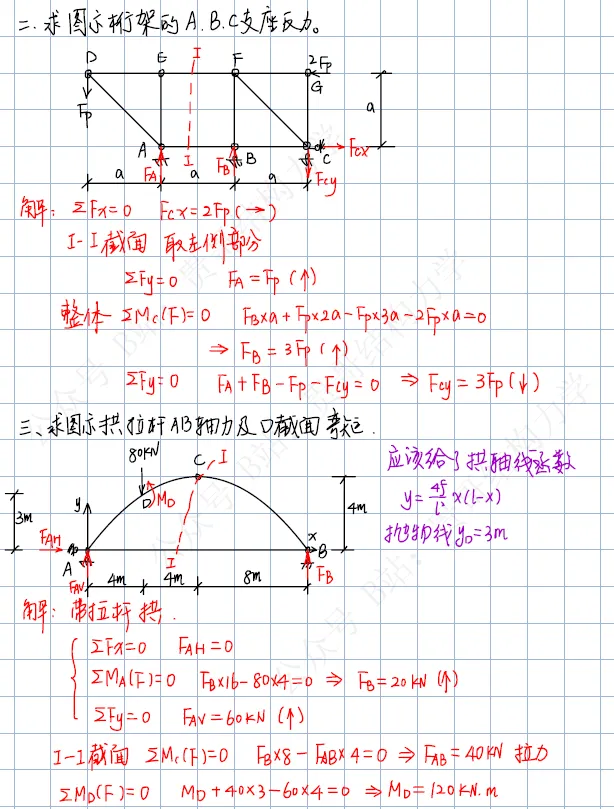 二.求图示桁架的A.B.C支座反力。
D E I F 2Fp
G
Fp a
A I B C Fcx
FA FB Fcy
a a a
解: ΣFx=0 Fcx=2Fp(→)
I-I截面 取左侧部分
ΣFy=0 FA=Fp(↑)
整体 ΣMc(F)=0 FB×a+Fp×2a-Fp×3a-2Fp×a=0
⇒ FB=3Fp(↑)
ΣFy=0 FA+FB-Fp-Fcy=0 ⇒ Fcy=3Fp(↓)
三、求图示拱拉杆AB轴力及D截面弯矩.
80KN C I
应该给了拱轴线函数
y D MD
3m 4m
y=4f/l² x(l-x)
抛物线yD=3m
FAH A I x B
FAV 4m 4m 8m FB
解: 带拉杆拱.
ΣFx=0 FAH=0
ΣMA(F)=0 FB×16-80×4=0 ⇒ FB=20KN(↑)
ΣFy=0 FAV=60KN(↑)
I-I截面 ΣMc(F)=0 FB×8-FAB×4=0 ⇒ FAB=40KN 拉力
ΣMD(F)=0 MD+40×3-60×4=0 ⇒ MD=120KN.m